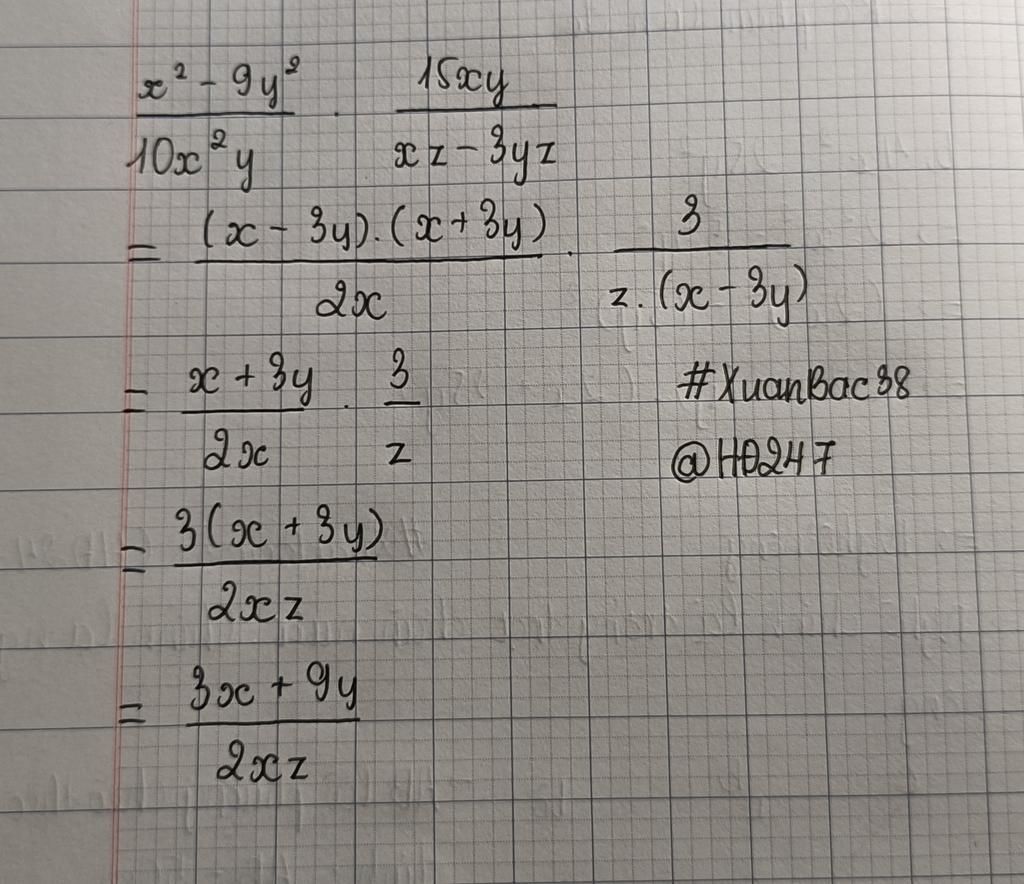 x² - 9y² / 10x²y . 15xy / xz - 3yz
= (x - 3y).(x + 3y) / 2x . 3 / z.(x - 3y)
= x + 3y / 2x . 3 / z
#XuanBac38
@HĐ247
= 3(x + 3y) / 2xz
= 3x + 9y / 2xz